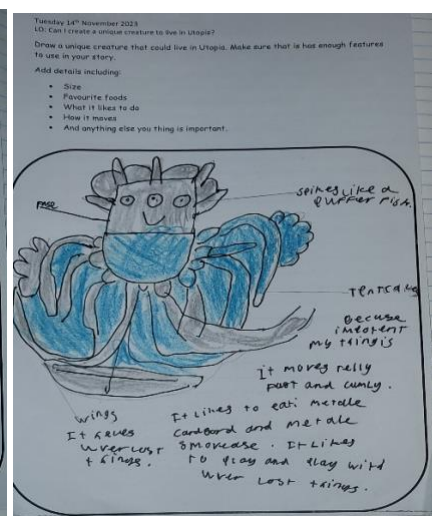 Tuesday 14th November 2023
LO: Can I create a unique creature to live in Utopia?
Draw a unique creature that could live in Utopia. Make sure that is has enough features
to use in your story.
Add details including:
• Size
• Favourite foods
• What it likes to do
• How it moves
• And anything else you thing is important.
face
spikes like a
puffer fish.
Becuse
imeotent
my thingis
It moves relly
fast and cumly.
wings
It likes to eati metale
cardbord and metale
It likes
to play and play witd
lost